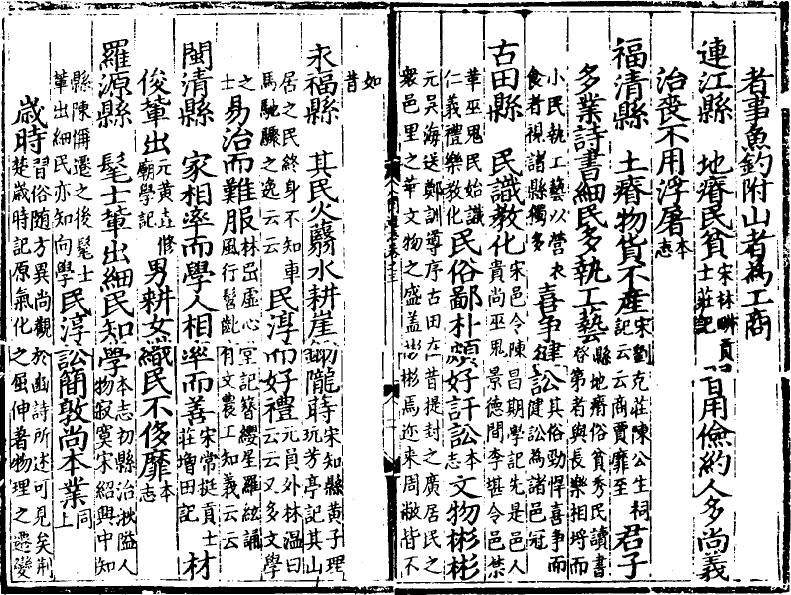 者事魚釣附山者為工商
連江縣　地瘠民貧宋林畊貢士莊記日用儉約人多尚義
治喪不用浮屠本志
福清縣　土瘠物貨不產宋劉克莊陳公生祠記云云商賈靡至君子
多業詩書細民多執工藝縣地瘠俗貧秀民讀書登第者與長樂相埒而
小民執工藝以營衣食者視諸縣獨多喜爭健訟其俗勁悍喜爭而健訟為諸邑冠
古田縣　民識教化宋邑令陳昌期學記先是邑人貴尚巫鬼景德間李堪令邑禁
華巫鬼民始識仁義禮樂教化民俗鄙朴頗好訐訟本志文物彬彬
元吳海送鄭訓導序古田在昔提封之廣居民之衆邑里之華文物之盛蓋彬彬焉近來周敝皆不
如昔
永福縣　其民火耨水耕崖鋤隴蒔宋知縣黃子理玩芳亭記其山
居之民終身不知車馬馳驟之逸云云民淳而好禮元員外林温曰云云又多文學
之士易治而難服林嵒虛心堂記簪纓星羅絃誦風行髫齔有文農工知義云云
閩清縣　家相率而學人相率而善宋常挺貢士莊增田記材
俊輩出元黃垚修廟學記男耕女織民不侈靡本志
羅源縣　髦士輩出細民知學本志初縣治湫隘人物寂寞宋紹興中知
縣陳偁遷之後髦士輩出細民亦知向學民淳訟簡敦尚本業同上
歲時習俗随方異尚觀於豳詩所述可見矣荆楚歲時記原氣化之屈伸著物理之遷變